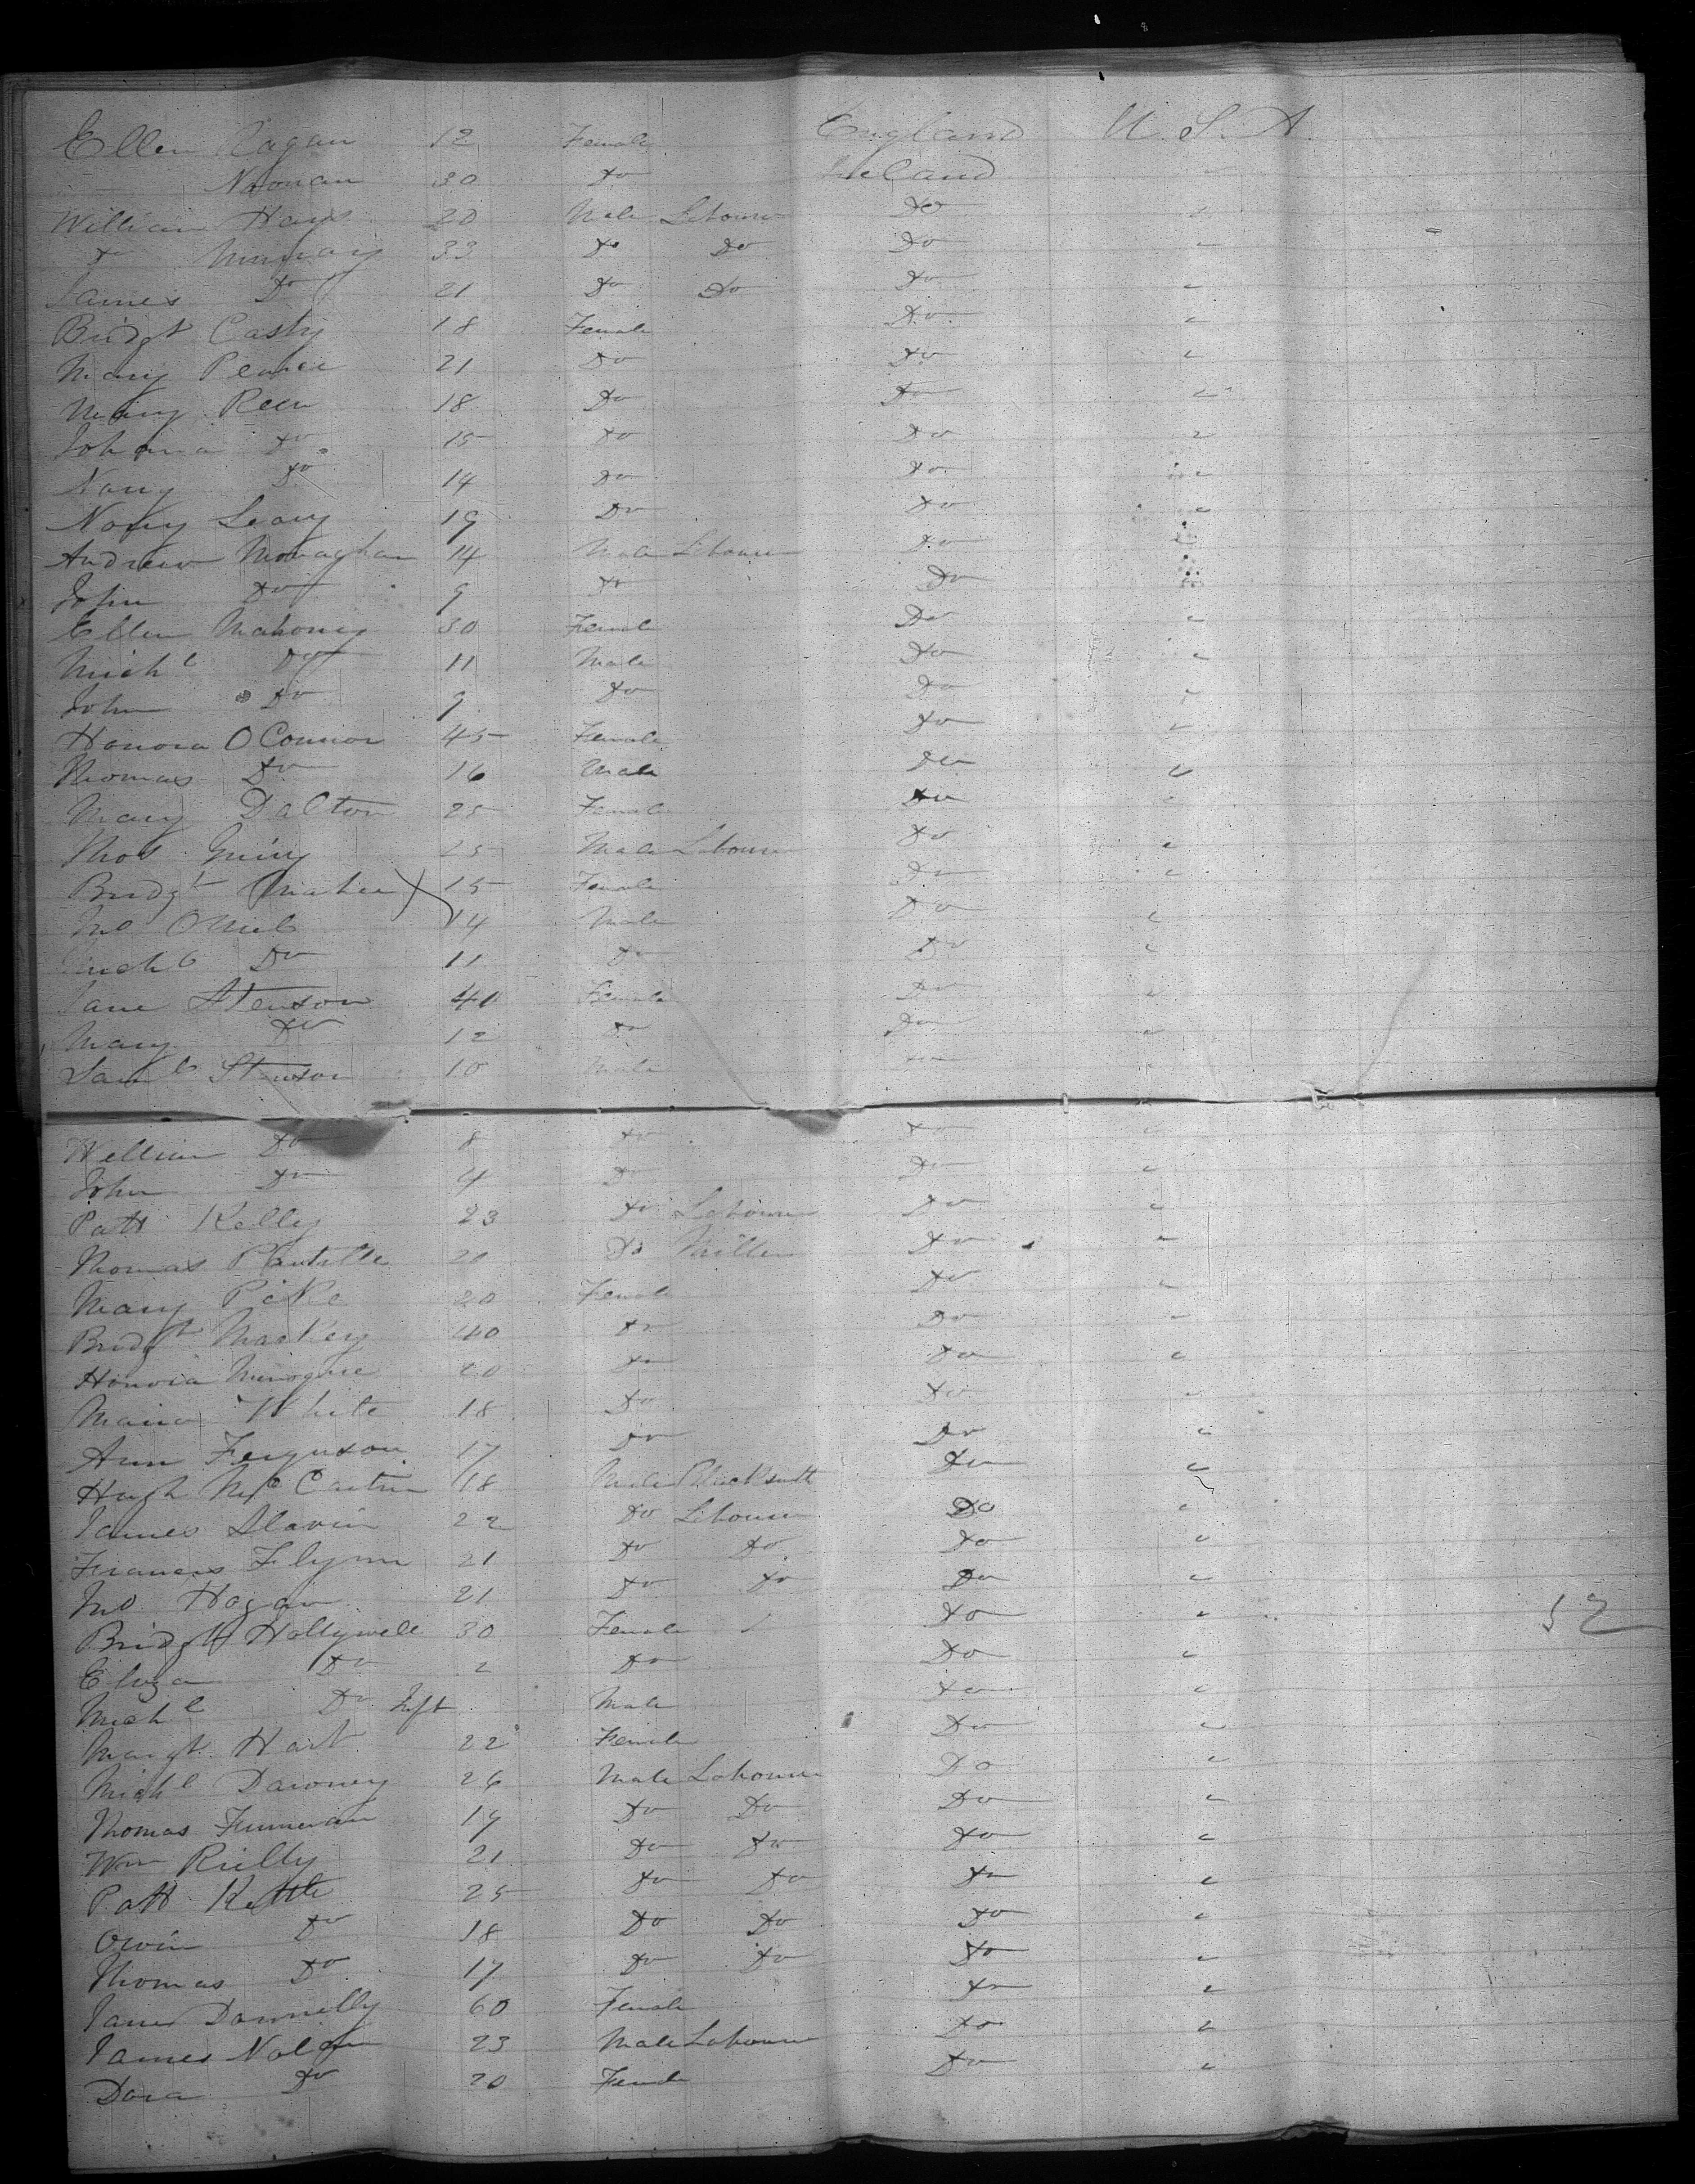 Ellen Ragan 12 Female England U.S.A.
Noonan 30 Do Ireland "
William Hays 20 Male Labourer Do "
Do Murray 33 Do Do Do "
James Do 21 Do Do Do "
Bridgt Casty 18 Female Do "
Mary 21 Do Do "
Mary Reen 18 Do Do "
Johana Do 15 Do Do "
Nany Do 14 Do Do "
Nany Leary 19 Do Do "
Andrew Monaghan 14 Male Labourer Do "
John Do 9 Do Do "
Ellen Mahoney 30 Female Do "
Michl Do 11 Male Do "
John Do 9 Do Do "
Honora O Connor 45 Female Do "
Thomas Do 16 Male Do "
Mary Dalton 25 Female Do "
Thos 25 Male Labourer Do "
Bridgt 15 Female Do "
Jno ONiel 14 Male Do "
Michl Do 11 Do Do "
Jane Stenson 40 Female Do "
Mary Do 12 Do Do "
Saml Stenson 10 Male Do "
William Do 8 Do Do "
John Do 4 Do Do "
Patt Kelly 23 Do Labourer Do "
Thomas 20 Do Miller Do "
Mary Pike 20 Female Do "
Bridgt Markey 40 Do Do "
Honora Minogue 20 Do Do "
Maria White 18 Do Do "
Ann Ferguson 17 Do Do "
Hugh Mc 18 Male Blacksmith Do "
James Slavin 22 Do Labourer Do "
Frances Flynn 21 Do Do Do "
Jno Hagan 21 Do Do Do "
Bridgtt Hollywell 30 Female Do " 52
Eliza Do 2 Do Do "
Michl Do Inft Male Do "
Margt Hart 22 Female Do "
Michl Dawney 26 Male Labourer Do "
Thomas Finnevan 19 Do Do Do "
Wm Rielly 21 Do Do Do "
Patt Kettle 25 Do Do Do "
Owin Do 18 Do Do Do "
Thomas Do 17 Do Do Do "
Jane Donnelly 60 Female Do "
James Nolan 23 Male Labourer Do "
Dora Do 20 Female Do "